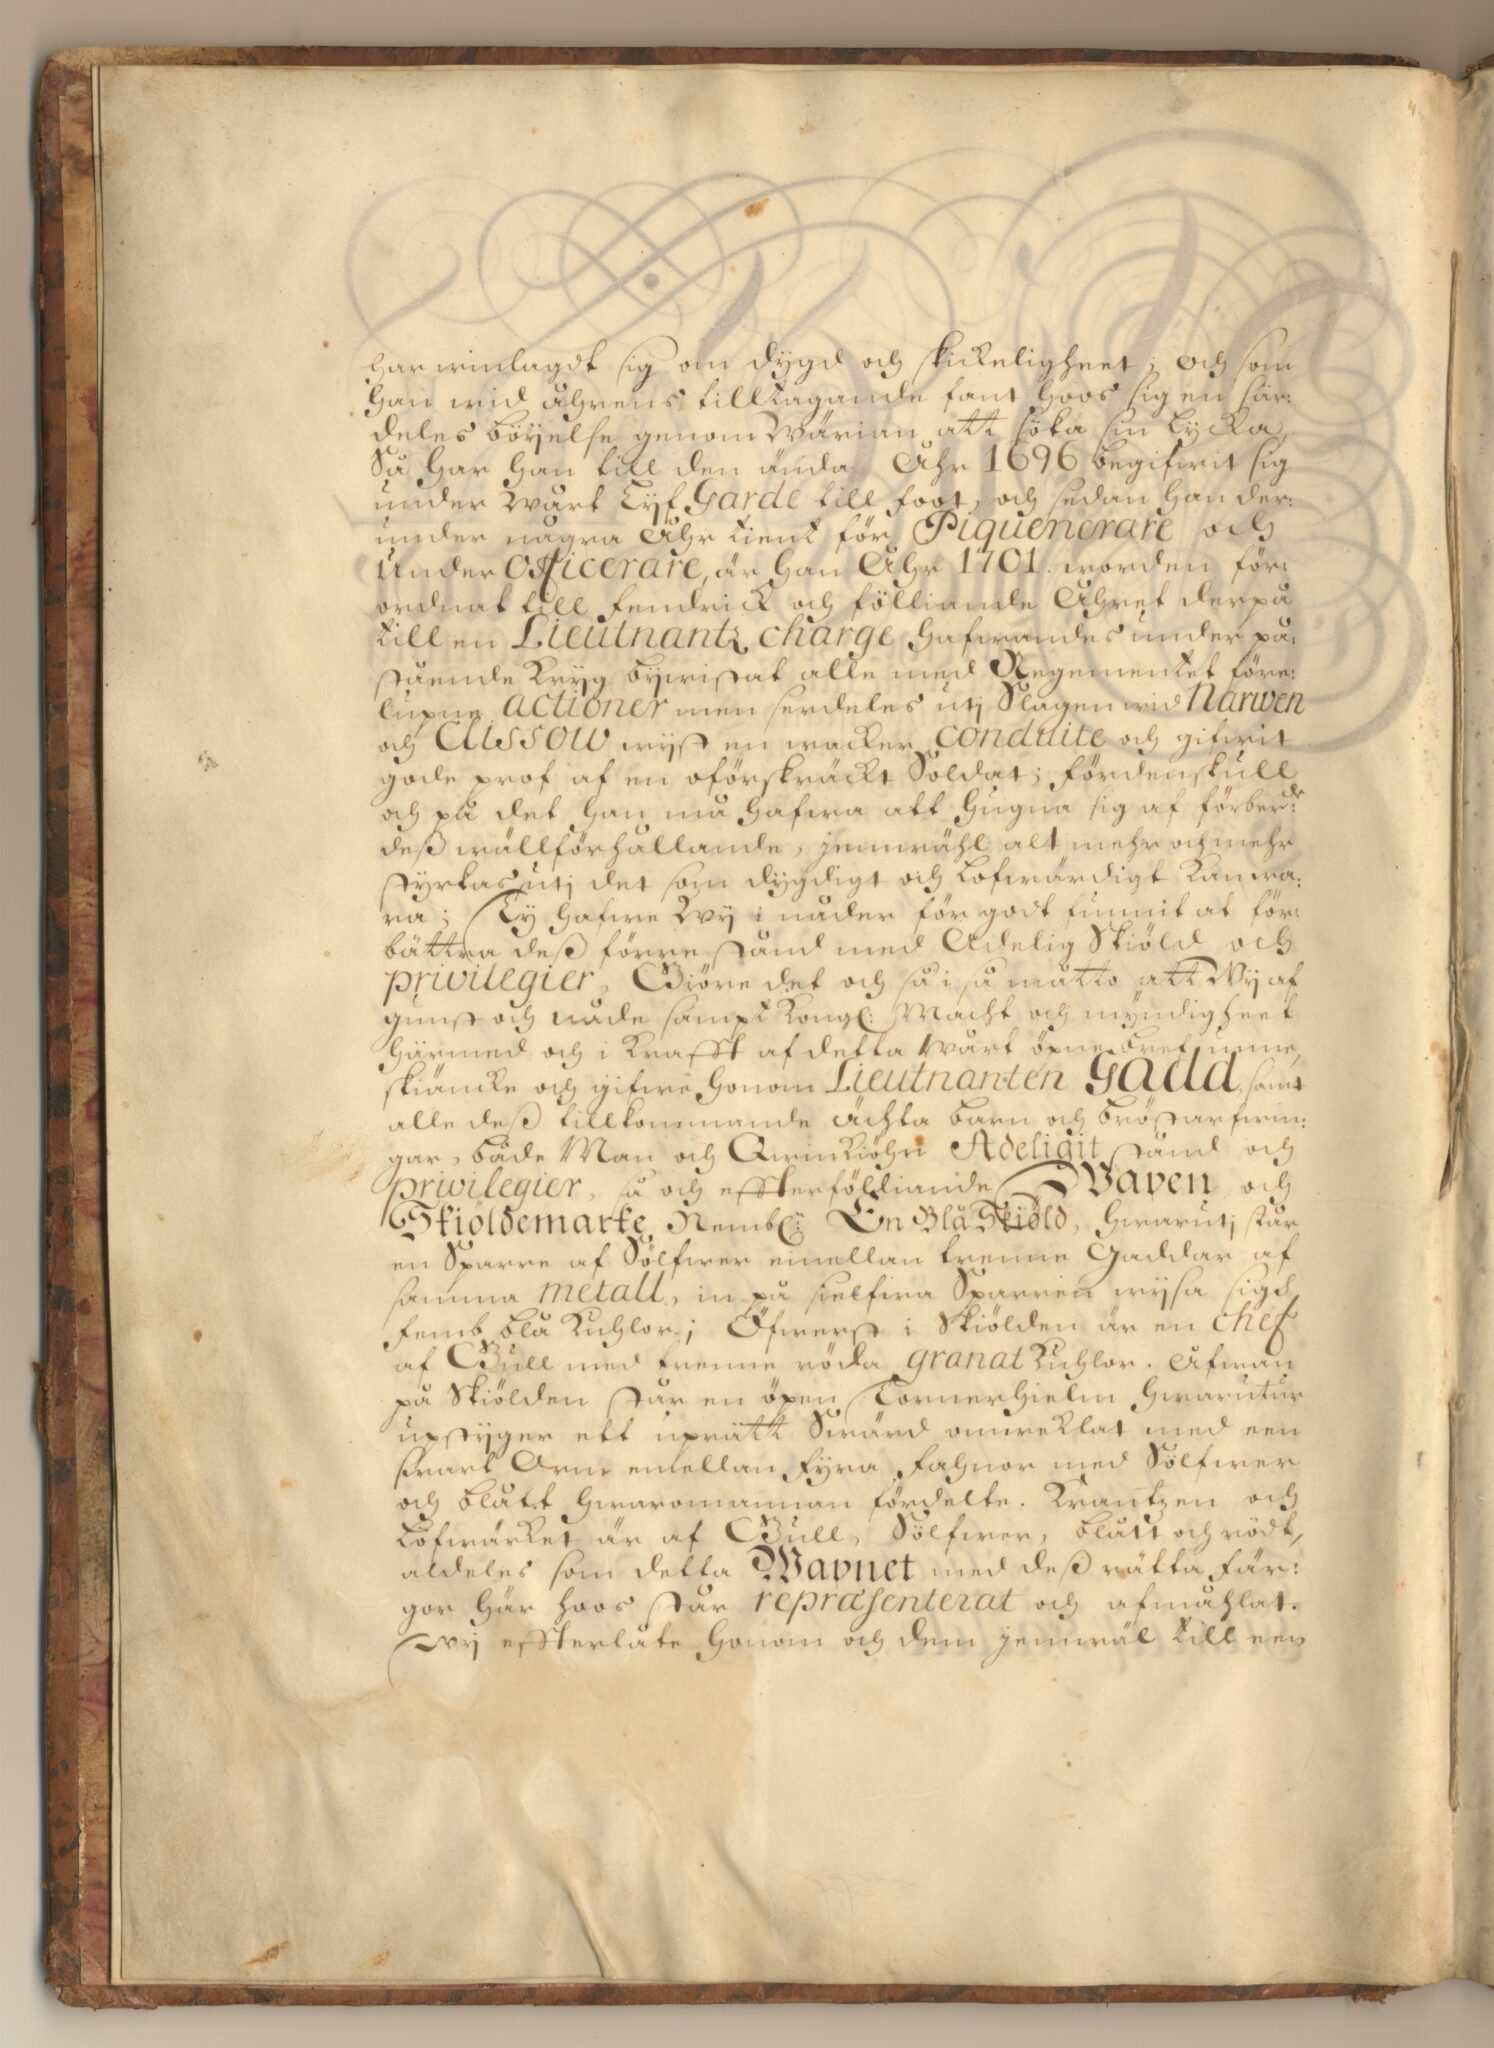 har winlagdt sig om dygd och skickeligheet; och som
han wid åhrens tilltagande fant hoos sig en sär:
deles böyelse genom Wärian att söka sin lycka,
Så har han till den ända Åhr 1696 begifwit sig
under Wårt Lyf Garde till foot, och sedan han der:
under några Åhr tient för Piquenerare och
Under Officerare, är han Åhr 1701. worden för:
ordnat till fendrick och fölliande Åhret derpå
till en Lieutnantz charge, hafwandes under på:
stående Kryg bywistat alle med Regementet före:
lupne actioner men serdeles utj Slagen wid Narwen
och Clissow wyst en wacker conduite och gifwit
gode prof af en oförskräckt Soldat; fördenskull
och på det han må hafwa att hugna sig af förber:de
deß wällförhållande, jemwähl alt mehr och mehr
styrkas utj det som dygdigt och lofwärdigt kan wa:
ra; Ty hafwe Wy i nåder för godt funnit at för:
bättra deß förre stånd med Adelig Skiöld och
privilegier, Giöre det och så i så matto att Wy af
gunst och nåde sampt Kongl: Macht och myndigheet
härmed och i krafft af detta Wårt öpne bref unne,
skiäncke och gifwe honom Lieutnanten Gadd, samt
alle deß tillkommande ächta barn och bröstarfwin:
gar, både Man och Qwinkiöhn Adeligit stånd och
privilegier, så och effterfölliande Wapen och
Skiöldemärke Nembl: En Blå Skiöld, hwarutj står
en Sparre af Sölfwer emellan trenne Gäddar af
samma metall, in på sielfwa Sparren wysa sig
femb blå Kuhlor; Öfwerst i Skiölden är en chef
af Gull med trenne röda granat Kuhlor. Åfwan
på Skiölden står en öpen Tornerhielm hwarutur
upstyger ett uprätt Swärd omwecklat med een
swart Orm emellan fyra fahnor med Sölfwer
och blått hwaromannan fördelte. Krantzen och
Löfwärket är af Gull, Sölfwer, blått och rödt,
aldeles som detta Wapnet med deß rätta fär:
gor här hoos står repræsenterat och afmåhlat.
Wy effterlåte honom och dem jemwäl till een